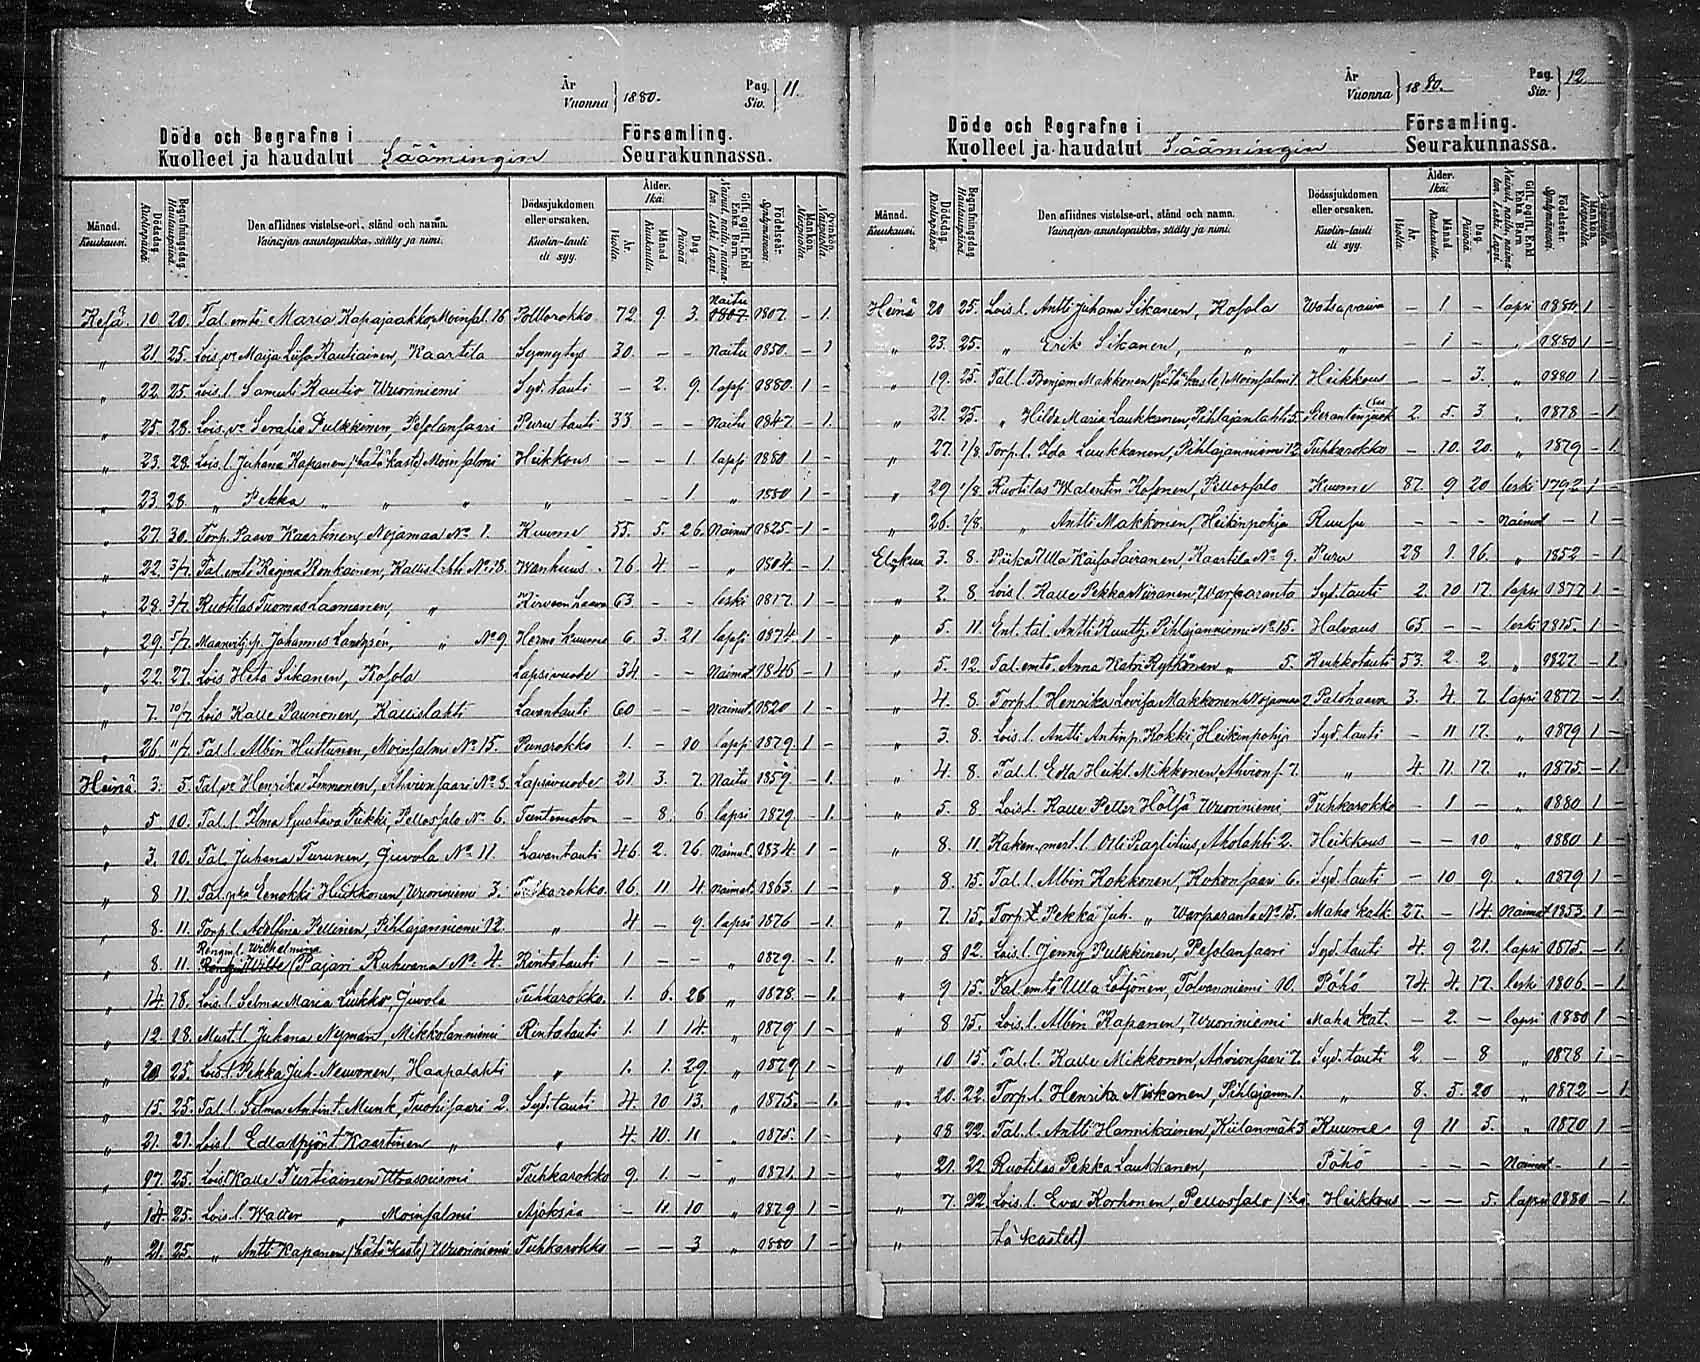 År
Vuonna } 1880.
Pag.
Siv. } 11.
Döde och Begrafne i Församling.
Kuolleet ja haudatut Säämingin Seurakunnassa.
Månad. Kuukausi. Dödsdag. Kuolinpäivä. Begrafningsdag. Hautauspäivä. Den aflidnes vistelse-ort, stånd och namn. Vainajan asuntopaikka, sääty ja nimi. Dödssjukdomen eller orsaken. Kuolin-tauti eli syy. Ålder. Ikä. År. Vuotta. Månad. Kuukautta. Dag. Päivää. Gift, ogift, Enkl. Enka, Barn. Nainut, naitu, naimaton, Leski, Lapsi. Födelseår. Syntymävuosi. Mankön. Miespuolia. Qvinkön. Naispuolia.
Kesä. 10 20. Tal. emtä Maria Kapajaakko, Moinsal. 16 Polttorokko 72 9. 3. Naitu 1807 1807 - 1.
„ 21 25. Lois. v:o Maija Liisa Rautiainen, Kaartila Synnytys 30. - - Naitu 1850. - 1
„ 22 25. Lois. l. Samuli Rautio Wuoriniemi Syd. tauti - 2. 9. lapsi 1880. 1 -
„ 25. 28. Lois. v:o Serafia Pulkkinen, Pesolansaari Puru tauti 33 - - Naitu 1847. - 1.
„ 23. 28. Lois. l. Juhana Kapanen /:hätä kaste:/ Moinsalmi Heikkous - - 1 lapsi 1880 1 -
„ 23 28 „ Pekka „ „ „ - - 1 „ 1880 1 -
„ 27. 30. Torp. Paavo Kaartinen, Nojamaa No 1. Kuume 55. 5. 26 Nainut 1825 - 1 -
„ 22. 3/7. Tal. emtä Regina Ronkainen, Kallisl:hti No 18. Wanhuus. 76 4 - „ 1804 - 1.
„ 28. 3/7. Ruotilas Tuomas Laamanen, „ Kirveen haava 63. - - leski 1817. 1 -
„ 29. 5/7. Maanvilj. p. Johannes „ No 9. Hermo kuume 6. 3. 21 lapsi 1874 1 -
„ 22. 27. Lois Heta Sikanen, Kosola Lapsivuode 34 - - Nainut 1846 - 1
„ 7. 10/7. Lois Kalle Paunonen, Kallislahti Lavantauti 60 - - Nainut. 1820 1 -
„ 26. 11/7. Tal. l. Albin Huttunen, Moinsalmi No 15. Punarokko 1. - 10 lapsi 1879 1 -
Heinä 3. 5. Tal. v:o Henrika Immonen, Ahvionsaari No 8. Lapsivuode 21. 3. 7. Naitu 1859 - 1.
„ 5 10. Tal. l. Ilma Gustava Pukki, Pellossalo No 6. Tuntematon - 8. 6 lapsi 1879 - 1.
„ 3. 10. Tal. Juhana Turunen, Juvola No 11. Lavantauti 46 2. 26 Nainut. 1834 1 -
„ 8 11. Tal. pka Eenokki Heikkonen, Wuoriniemi 3. Tuhkarokko. 16 11 4. naimat. 1863 1 -
„ 8. 11. Torp l. Adolfina Pellinen, Pihlajanniemi 12. „ 4 - 9. lapsi 1876 - 1.
„ 8. 11. Rengin l. Wilhelmina Pajari Ruhvana No 4. Rintatauti 1 - - „ 1879 - 1.
„ 14. 18. Lois. l. Selma Maria Liukko, Juvola Tuhkarokko. 1. 6. 26 „ 1878. - 1.
„ 12. 18. Must. l. Juhana Nyman, Mikkolanniemi Rintatauti 1. 1 14. „ 1879 1 -
„ 20 25. Lois. l. Pekka Juh. Neuvonen, Haapalahti „ 1. 1. 29 „ 1879 1 -
„ 15. 25. Tal. l. Selma Antint. Munk, Tuohisaari 2. Syd. tauti 4. 10 13. „ 1875. - 1.
„ 21. 27. Lois l. Kaartinen „ „ 4. 10. 11 „ 1875. 1 -
„ 17. 25. Lois. l. Kalle Turtiainen Utrasniemi Tuhkarokko 9. 1. - „ 1871. 1 -
„ 14. 25. Lois. l. Walter „ Moinsalmi Ajoksia - 11. 10 „ 1879 1 -
„ 21. 25. „ Antti Kapanen /:hätä kaste:/ Wuoriniemi Tuhkarokko - - 3 „ 1880 1 -
År
Vuonna } 1880.
Pag.
Siv. } 12.
Döde och Begrafne i Församling.
Kuolleet ja haudatut Säämingin Seurakunnassa.
Månad. Kuukausi. Dödsdag. Kuolinpäivä. Begrafningsdag. Hautauspäivä. Den aflidnes vistelse-ort, stånd och namn. Vainajan asuntopaikka, sääty ja nimi. Dödssjukdomen eller orsaken. Kuolin-tauti eli syy. Ålder. Ikä. År. Vuotta. Månad. Kuukautta. Dag. Päivää. Gift, ogift, Enkl. Enka, Barn. Nainut, naitu, naimaton, Leski, Lapsi. Födelseår. Syntymävuosi. Mankön. Miespuolia.
Heinä 20 25. Lois. l. Antti Juhana Sikanen, Kosola Watsapaiva - 1 - lapsi 1880. 1 -
„ 23. 25. „ Erik Sikanen, „ „ - 1 - „ 1880 1 -
„ 19. 25 Tal. l. Benjam Makkonen /:hätä kaste:/ Moinsalmi 1. Heikkous - - 3. „ 1880 1 -
„ 21. 25. „ Hilda Maria Laukkanen, Pihlajanlahti 5. 2. 5. 3 „ 1878 - 1.
„ 27. 1/8. Torp. l. Ida Luukkanen, Pihlajanniemi 12 Tuhkarokko - 10. 20. „ 1879 - 1.
„ 29 1/8. Ruotilas Walentin Kosonen, Pellossalo Kuume 87. 9 20 leski 1792 1 -
„ 26. 1/8. „ Antti Makkonen, Heikinpohja Ruusu - - - Naimat - 1 -
Elokuu 3. 8. Piika Ulla Kaisa Sairanen, Kaartila No 9. Puru 28 1. 16. „ 1852 - 1.
„ 2. 8 Lois l. Kalle Pekka Niiranen, Warparanta Syd. tauti 2. 10 17. lapsi 1877 1 -
„ 5. 11. Ent. tal. Antti Ruutti, Pihlajanniemi No 15. Halvaus 65 - - leski 1815. 1 -
„ 5. 12. Tal. emtä. Anna Katri Rytkönen „ 5. Keuhkotauti 53. 2. 2 „ 1827 - 1.
„ 4. 8. Torp. l. Henrika Lovisa Makkonen Nojamaa 2 Palohaava 3. 4 7. lapsi 1877 - 1.
„ 3. 8. Lois. l. Antti Antinp. Kokki, Heikinpohja Syd. tauti - 11 17. „ 1879 1 -
„ 4. 8. Tal. l. Edla Heikt. Mikkonen, Ahvions. 7. „ 4. 11. 17. „ 1875. - 1.
„ 5. 8 Lois l. Kalle Petter Hölsä Wuoriniemi Tuhkarokko - 1 - „ 1880 1 -
„ 8. 11. Raken. mest. l. Otti Paglitius, Aholahti 2. Heikkous - - 10 „ 1880 1 -
„ 8. 15. Tal. l. Albin Kokkonen, Kokonsaari 6. Syd. tauti - 10 9 „ 1879 1 -
„ 7. 15. Torp. Pekka Juh. „ Warparanta No 15. Maha Kat. 27. - 14. Nainut 1853. 1 -
„ 8 12. Lois. l. Jenny Pulkkinen, Pesolansaari Syd. tauti 4. 9 21. lapsi 1875. - 1.
„ 9 15. Tal. emtä Ulla Lötjönen, Tolvanniemi 10. Pöhö 74. 4. 17. leski 1806. - 1.
„ 8 15. Lois. l. Albin Kapanen, Wuoriniemi Maha Kat. - 2. - lapsi 1880 1 -
„ 10. 15. Tal. l. Kalle Mikkonen, Ahvionsaari 7. Syd. tauti 2. - 8 „ 1878 1 -
„ 20. 22. Torp. l. Henrika Niskanen, Pihlajann. 1. „ 8. 5. 20 „ 1872 - 1.
„ 18. 22. Tal. l. Antti Hannikainen, Kiilanmäki 3 Kuume 9 11 5. „ 1870 1 -
„ 21. 22 Ruotilas Pekka Laukkanen, Pöhö - - - Naimat. - 1 -
„ 7. 22. Lois. l. Eva Korhonen, Pellossalo /:hä- Heikkous - - 5. lapsi 1880 - 1.
„ tä kaste:/